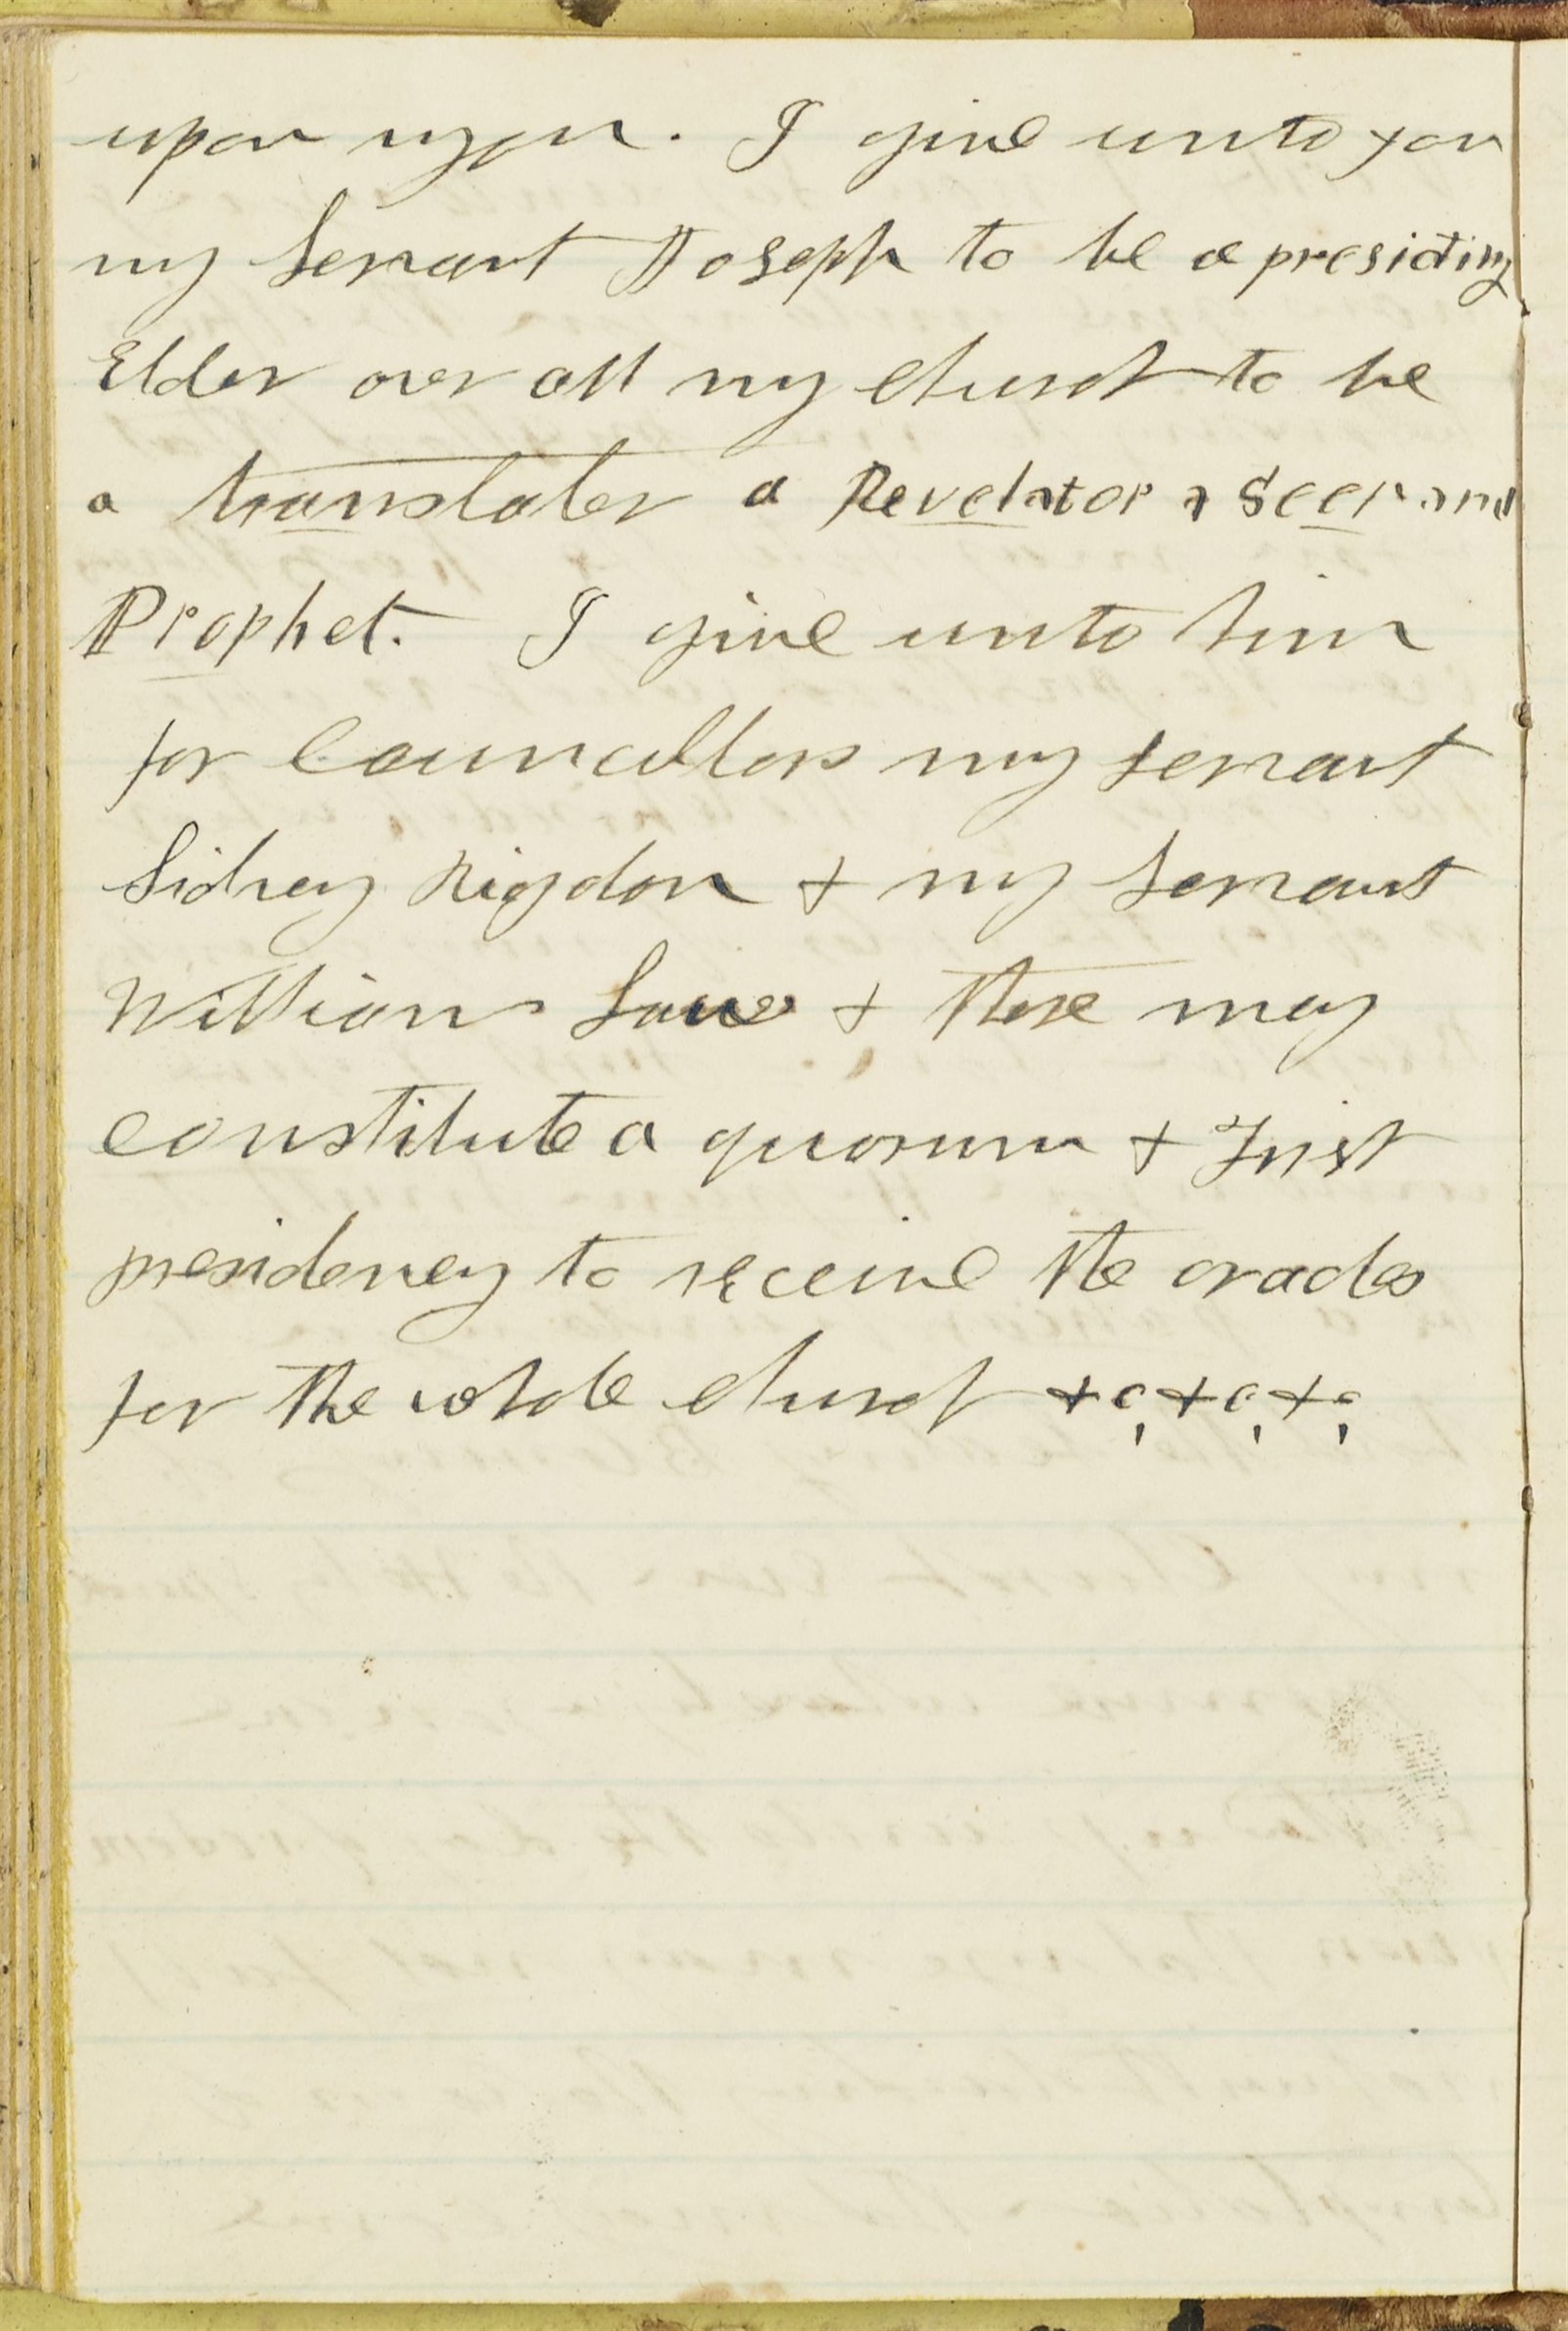 upon man. I give unto you
my Servant Joseph to be a presiding
Elder over all my church to be
a translater a Revelator a Seer and
Prophet. I give unto him
for Councillors my servant
Sidney Rigdon & my Servant
William Law & these may
constitute a quorum & First
presidency to receive the oracles
for the whole church &c, &c, &c,